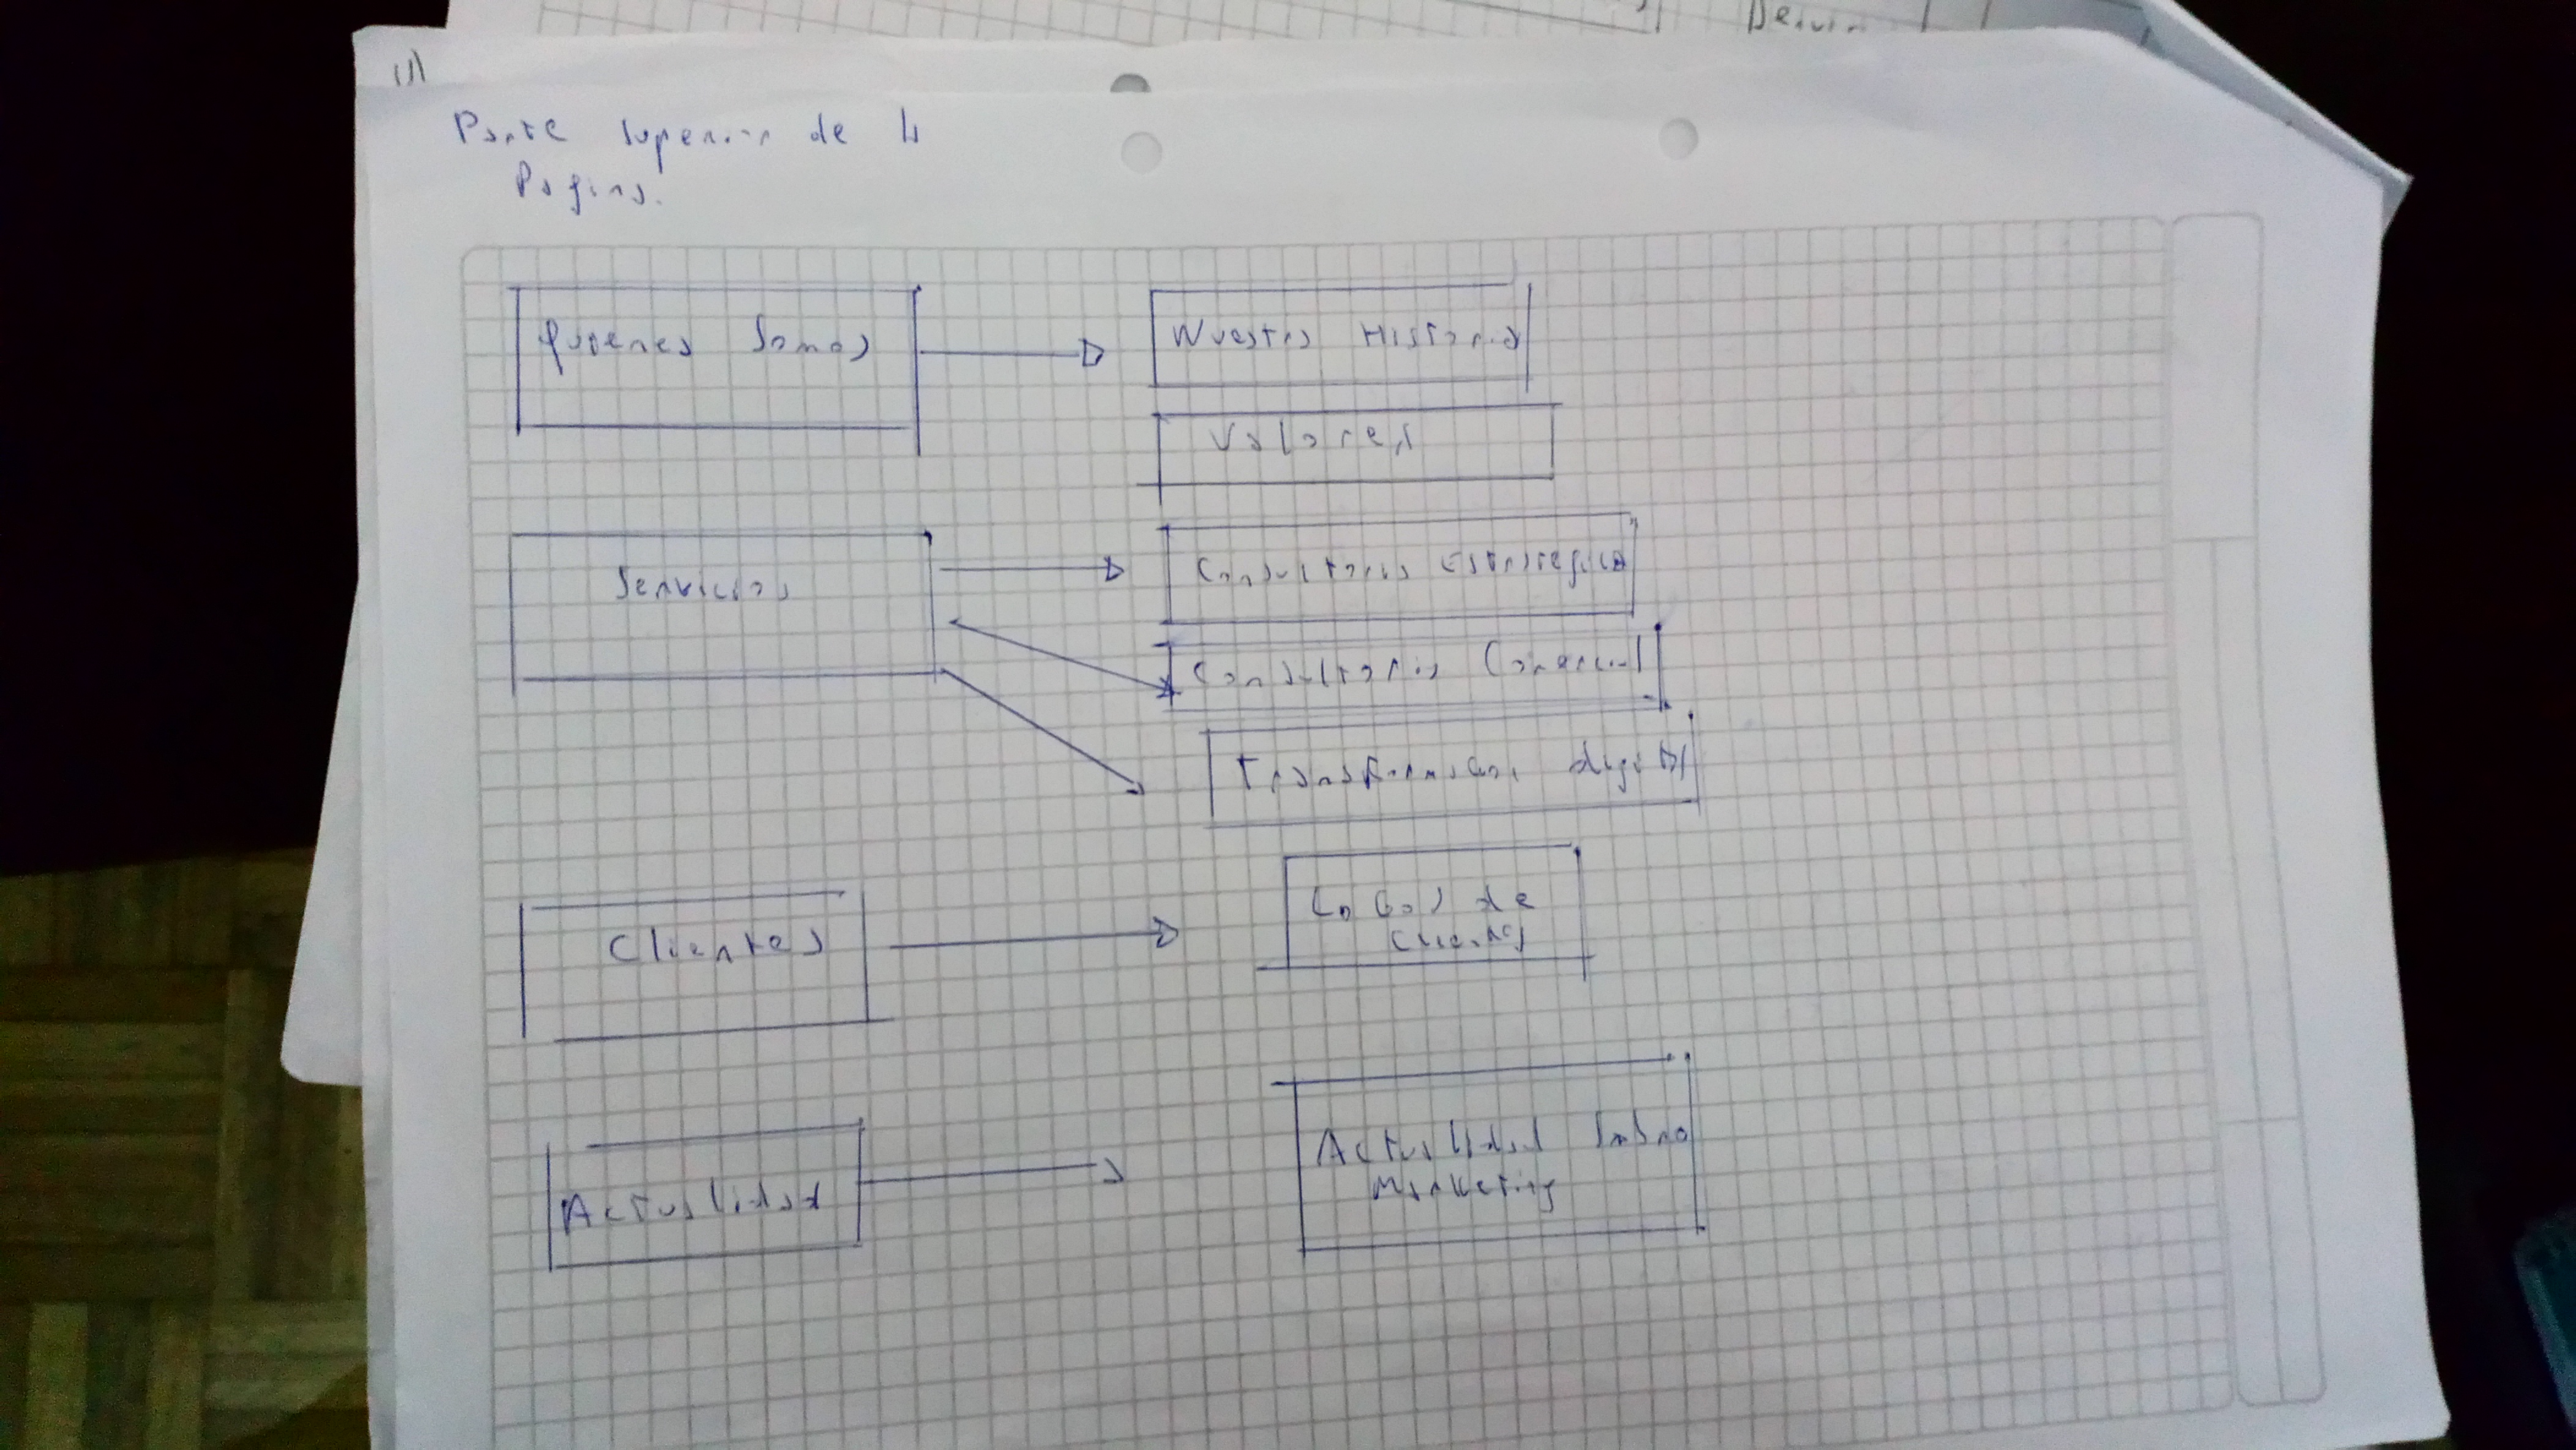 (1)
Parte superior de la
Pagina.
Quienes Somos
Nuestra Historia
Valores
Servicios
Consultoria Estrategica
Consultoria Comercial
Transformacion digital
Clientes
Logos de
Clientes
Actualidad
Actualidad Sobre
Marketing